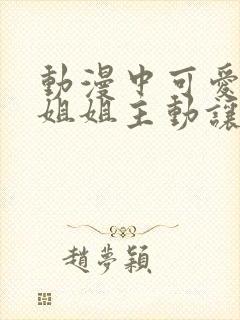 動漫中可愛
姐姐主動讓
趙夢穎